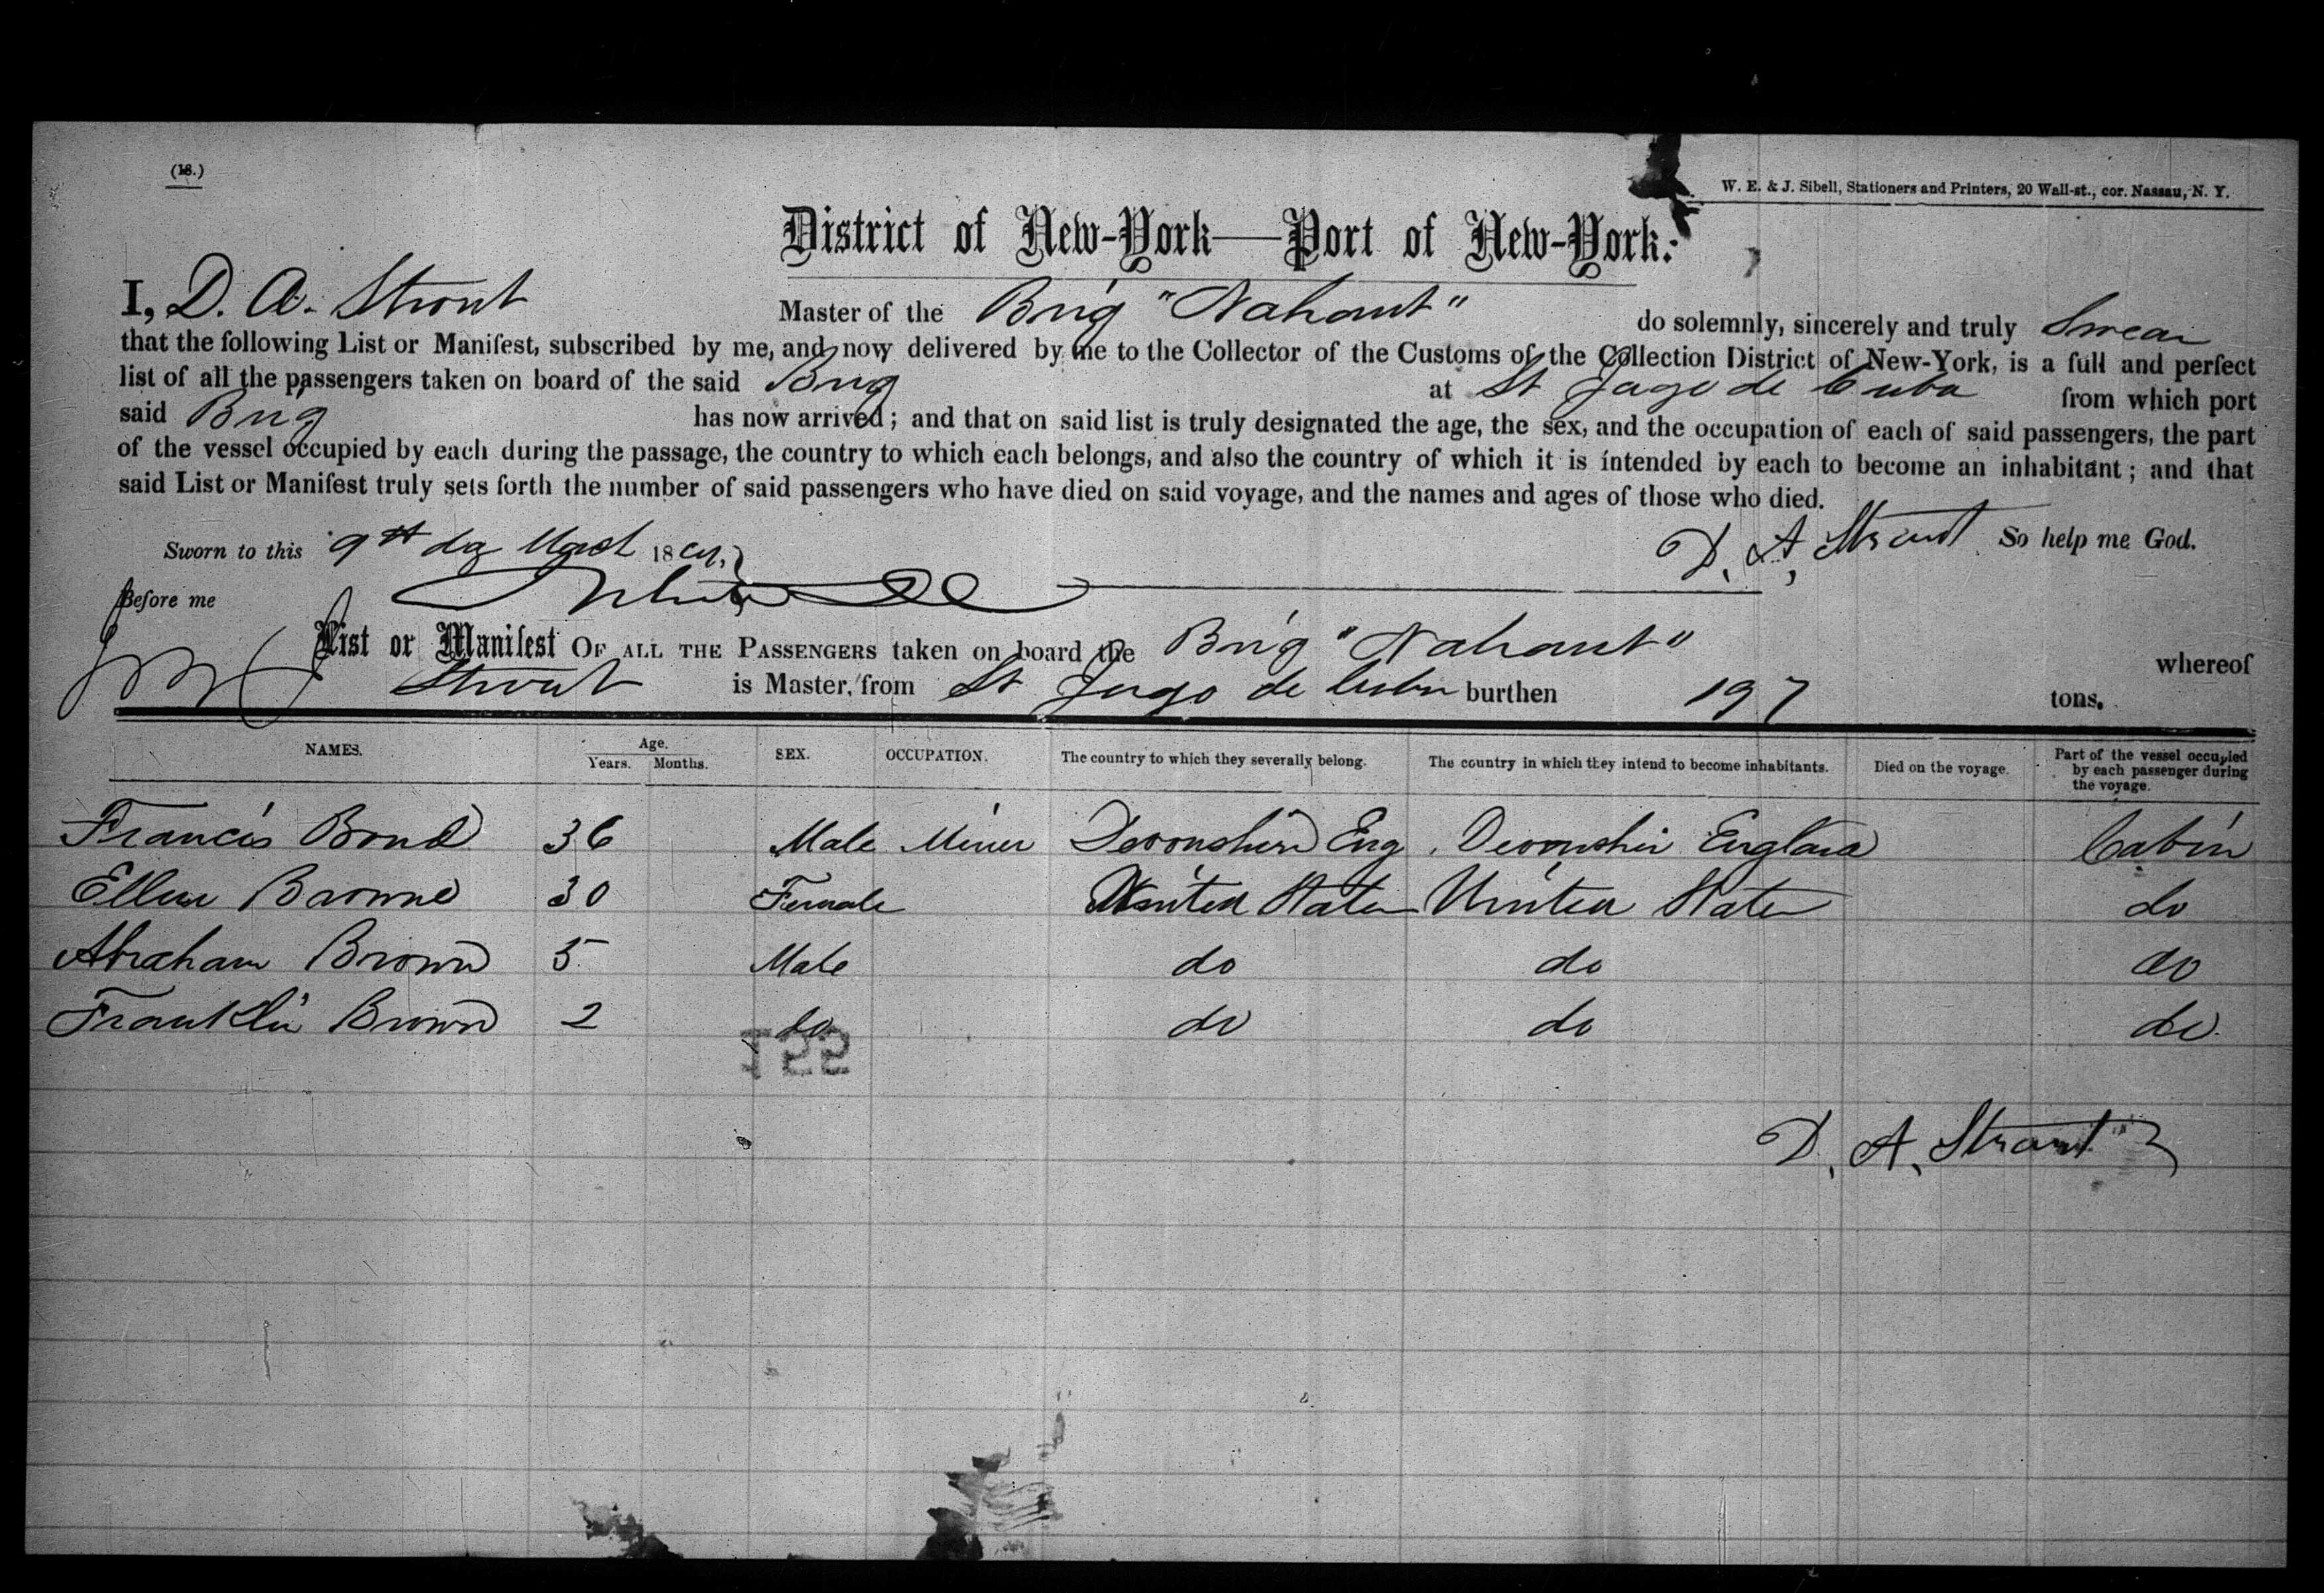 (18.)
W. E. & J. Sibell, Stationers and Printers, 20 Wall-st., cor. Nassau, N. Y.
District of New-York—Port of New-York:
I, D. A. Strout Master of the Brig "Nahant" do solemnly, sincerely and truly Swear
that the following List or Manifest, subscribed by me, and now delivered by me to the Collector of the Customs of the Collection District of New-York, is a full and perfect
list of all the passengers taken on board of the said Brig at St Jago de Cuba from which port
said Brig has now arrived; and that on said list is truly designated the age, the sex, and the occupation of each of said passengers, the part
of the vessel occupied by each during the passage, the country to which each belongs, and also the country of which it is intended by each to become an inhabitant; and that
said List or Manifest truly sets forth the number of said passengers who have died on said voyage, and the names and ages of those who died.
Sworn to this 9th day March 18 D. A. Strout So help me God.
Before me
List or Manifest OF ALL THE PASSENGERS taken on board the Brig "Nahant" whereof
Strout is Master, from St Jago de Cuba burthen 197 tons.
NAMES. Age. Years. Months. SEX. OCCUPATION. The country to which they severally belong. The country in which they intend to become inhabitants. Died on the voyage. Part of the vessel occupied by each passenger during the voyage.
Francis Bond 36 Male Miner Devonshire Eng Devonshire England Cabin
Ellen Browne 30 Female United States United States do
Abraham Brown 5 Male do do do
Franklin Brown 2 do do do do
D. A. Strout